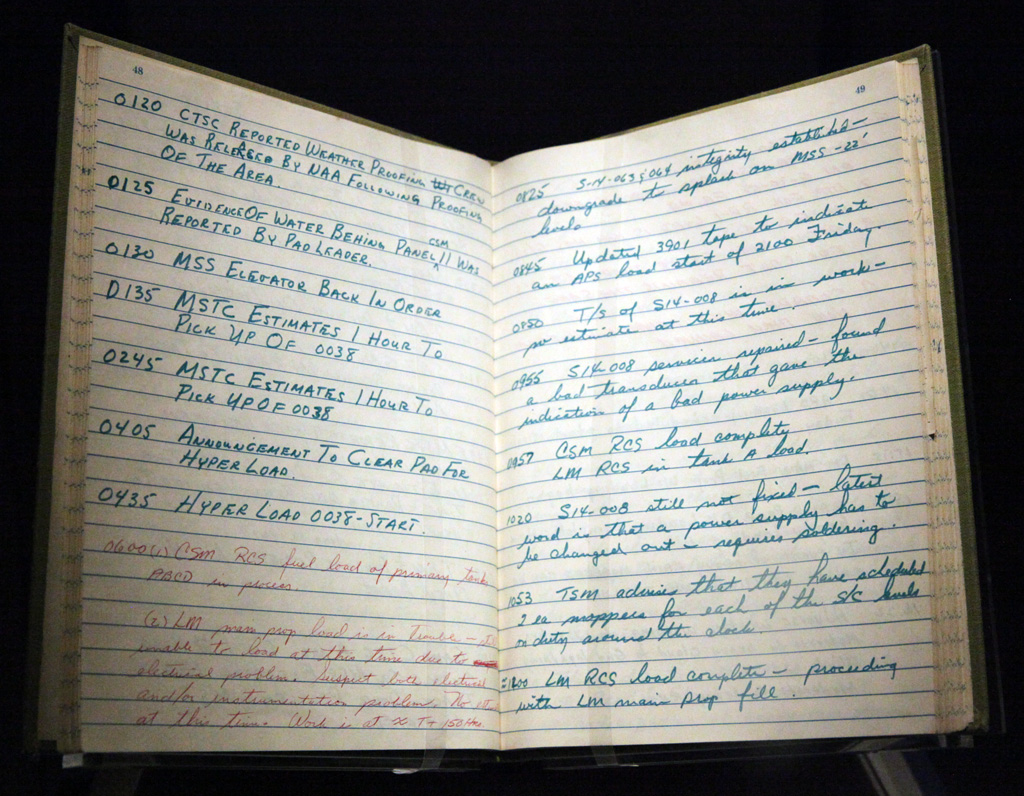 48
0120 CTSC REPORTED WEATHER PROOFING CREW
WAS RELEASED BY NAA FOLLOWING PROOFING
OF THE AREA.
0125 EVIDENCE OF WATER BEHING PANEL CSM 11 WAS
REPORTED BY PAD LEADER.
0130 MSS ELEVATOR BACK IN ORDER
0135 MSTC ESTIMATES 1 HOUR TO
PICK UP OF 0038
0245 MSTC ESTIMATES 1 HOUR TO
PICK UP OF 0038
0405 ANNOUNGEMENT TO CLEAR PAD FOR
HYPER LOAD.
0435 HYPER LOAD 0038-START.
0600 (1) CSM RCS fuel load of primary tank
ABCD in process.
(2) LM main prop load is in trouble —
unable to load at this time due to
electrical problem. Suspect both electrical
and/or instrumentation problem. No
at this time. Work is at ≈ T+ 15 Hrs.
49
0825 S-14-063 & 064 integrity established-
downgrade to splash on MSS-22'
levels
0845 Updated 3901 tape to indicate
an APS load start of 2100 Friday.
0850 T/S of S14-008 is in work-
no estimate at this time.
0955 S14-008 servicer repaired - found
a bad transducer that gave the
indication of a bad power supply.
0957 CSM RCS load complete
LM RCS in tank A load.
1020 S14-008 still not fixed - latest
word is that a power supply has to
be changed out - requires soldering.
1053 TSM advises that they have scheduled
2 ea moppers for each of the S/C levels
on duty around the clock.
1200 LM RCS load complete - proceeding
with LM main prop fill.